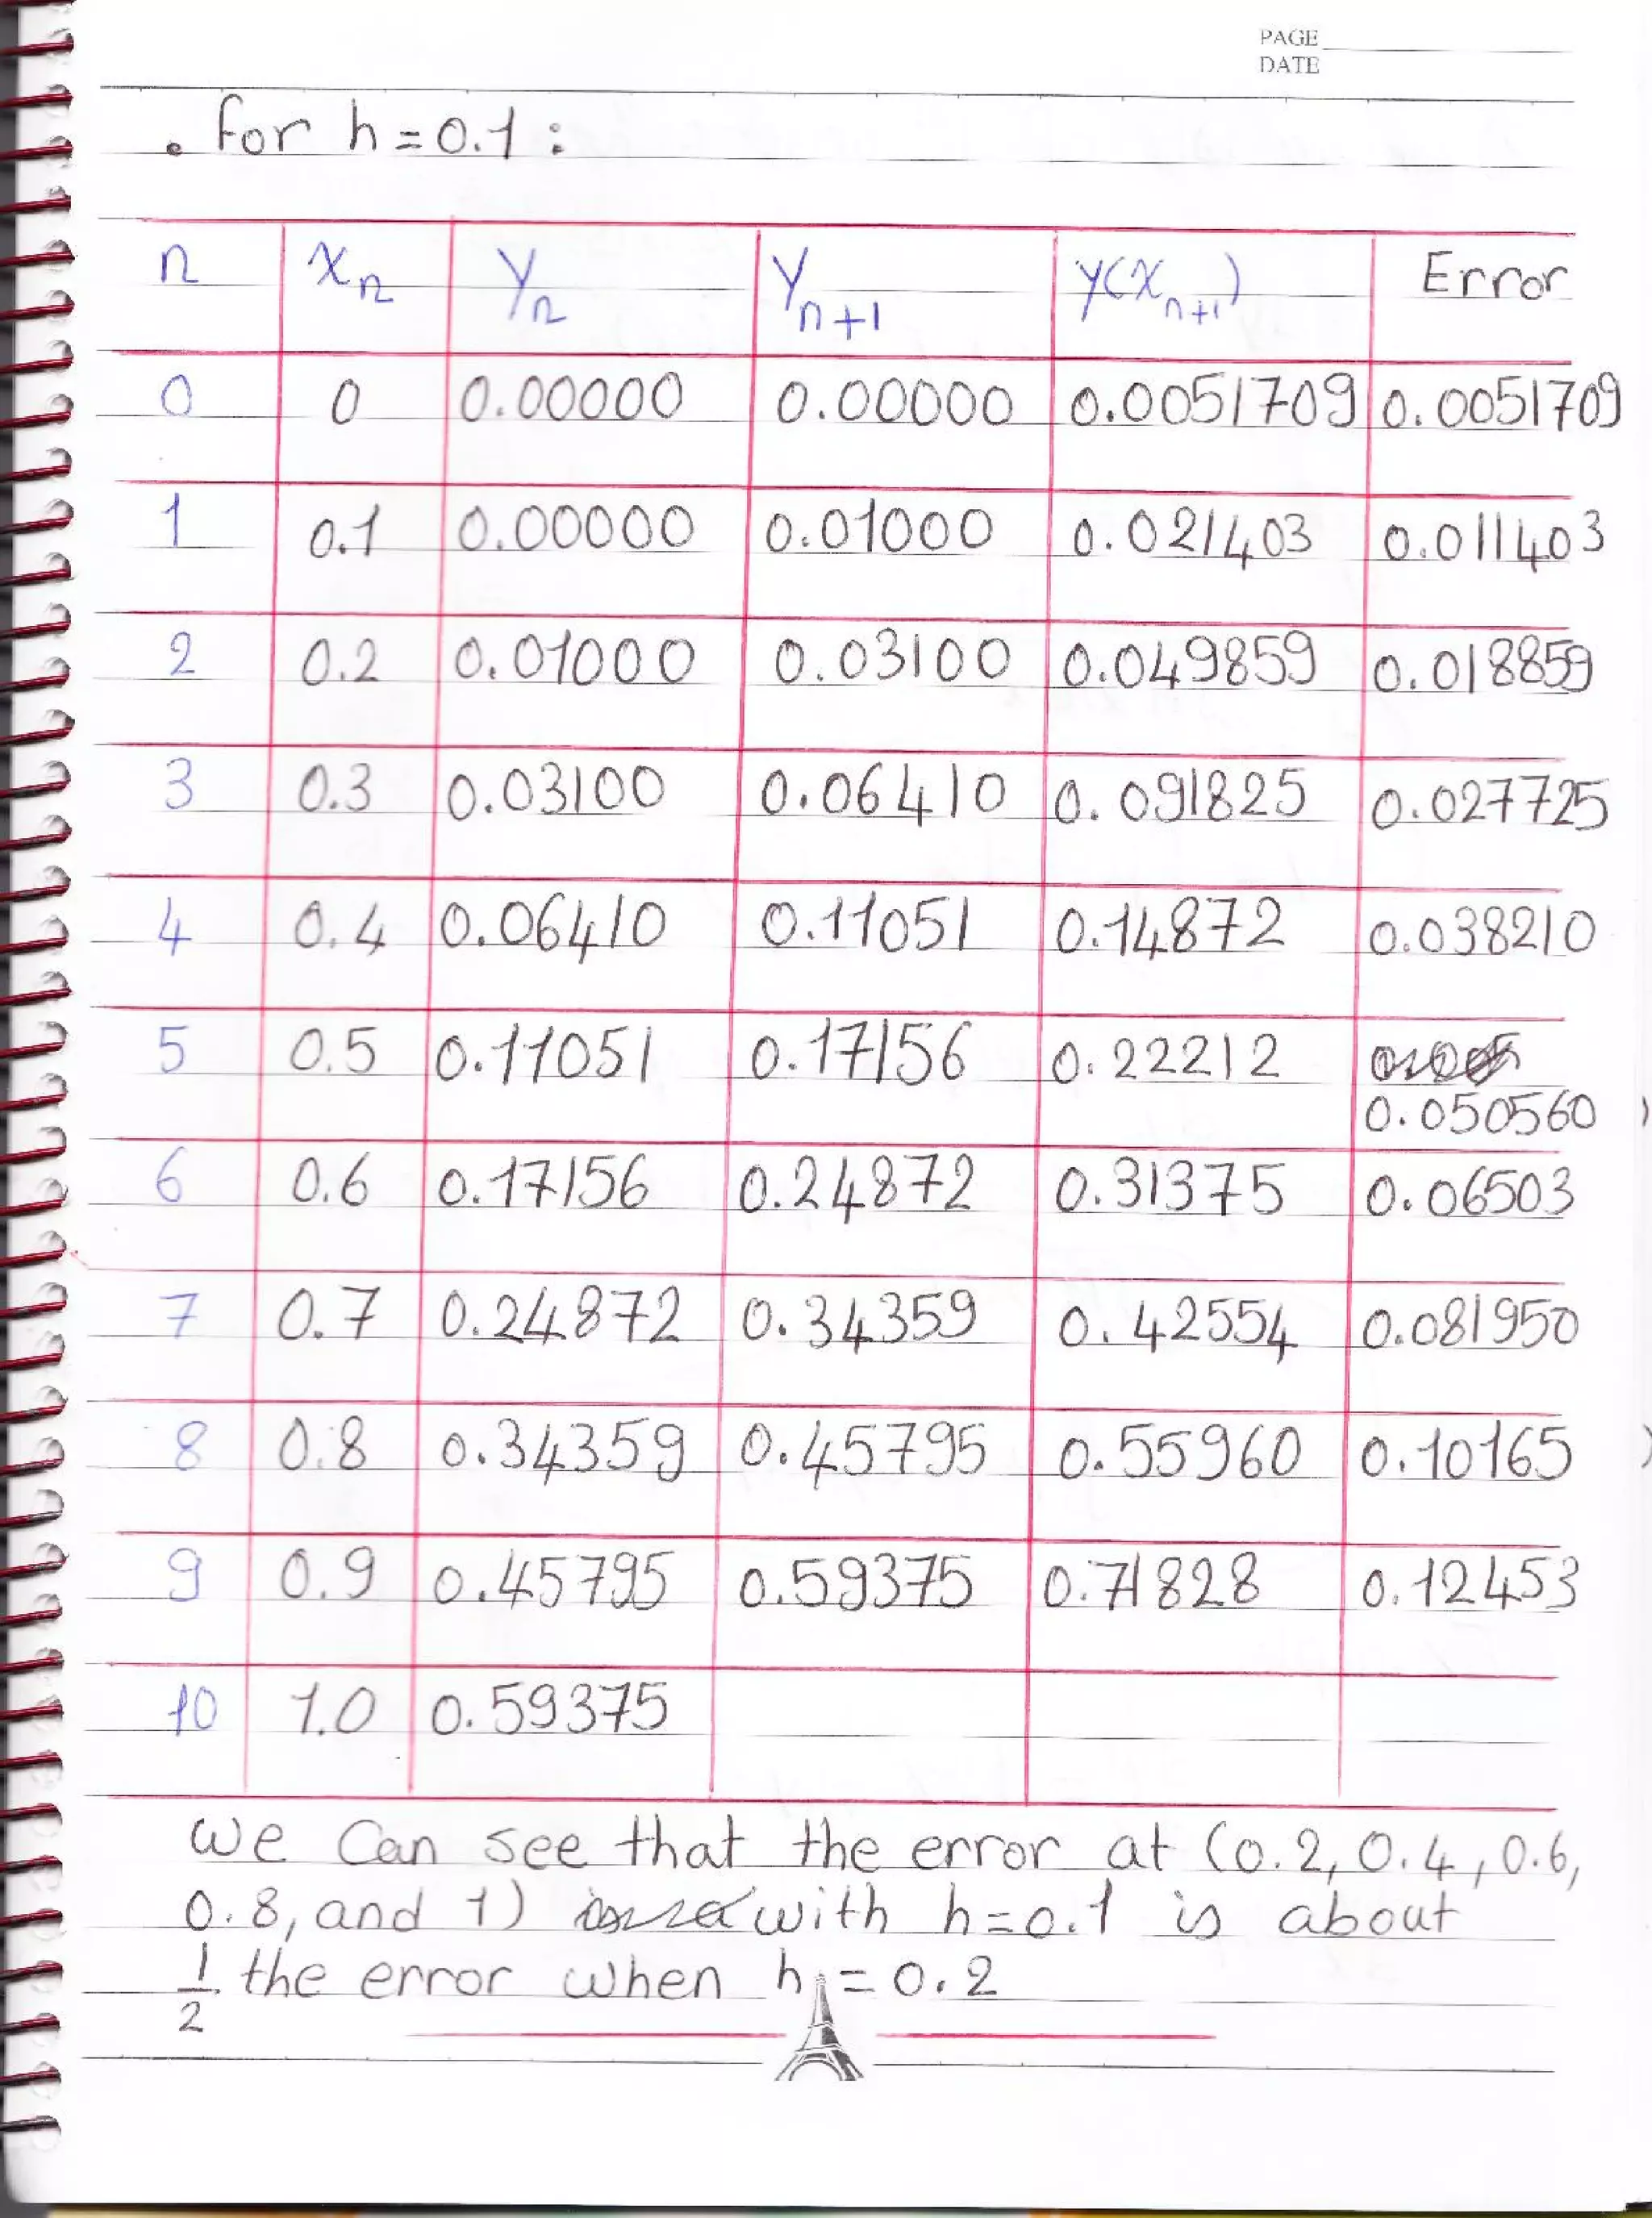 PAGE
DATE
. for h = 0.1 :
n xₙ Yₙ Yₙ₊₁ y(xₙ₊₁) Error
0 0 0.00000 0.00000 0.0051709 0.0051709
1 0.1 0.00000 0.01000 0.021403 0.011403
2 0.2 0.01000 0.03100 0.049859 0.018859
3 0.3 0.03100 0.06410 0.091825 0.027725
4 0.4 0.06410 0.11051 0.14872 0.038210
5 0.5 0.11051 0.17156 0.22212
0.050560
6 0.6 0.17156 0.24872 0.31375 0.06503
7 0.7 0.24872 0.34359 0.42554 0.081950
8 0.8 0.34359 0.45795 0.55960 0.10165
9 0.9 0.45795 0.59375 0.71828 0.12453
10 1.0 0.59375
we can see that the error at (0.2, 0.4, 0.6,
0.8, and 1) with h=0.1 is about
1/2 the error when h = 0.2